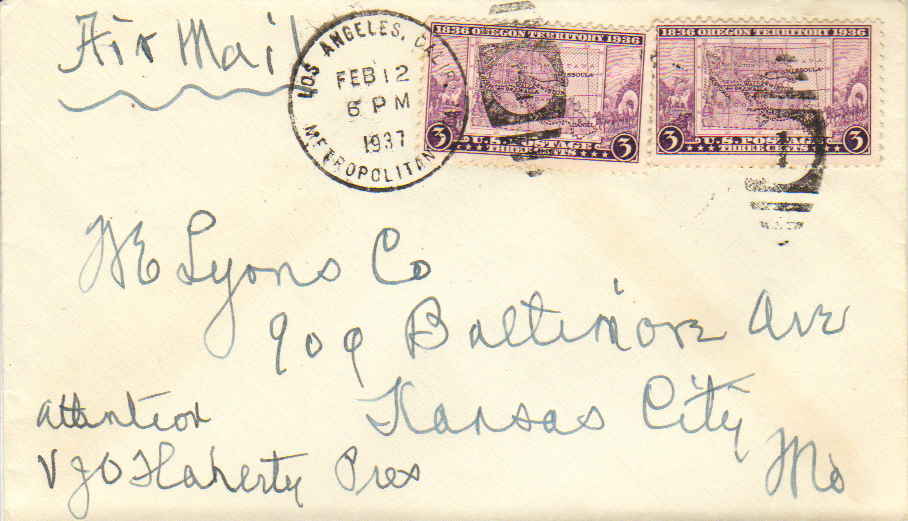 Air Mail
LOS ANGELES, CAL
FEB 12
6 PM
1937
METROPOLITAN
1836 OREGON TERRITORY 1936
3 U.S. POSTAGE 3
THREE CENTS
1836 OREGON TERRITORY 1936
3 U.S. POSTAGE 3
THREE CENTS
WE Lyons Co
909 Baltimore Ave
Kansas City
Mo
Attention
V J O Flaherty Pres